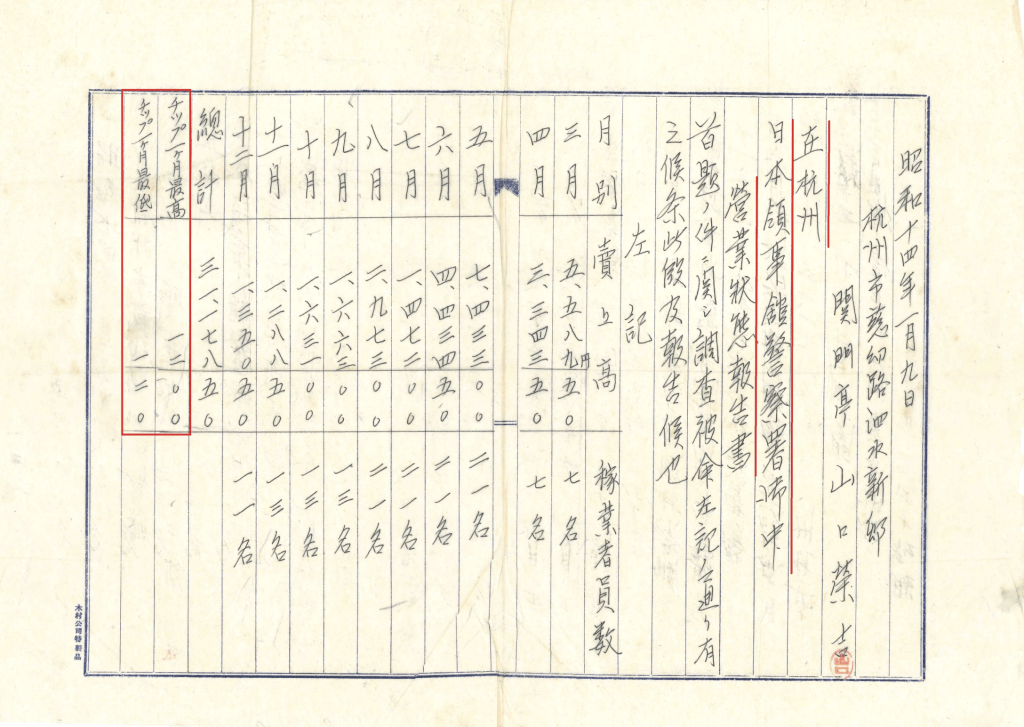 昭和十四年一月九日
杭州市慈幼路泗水新邨
開明亭 山口榮士
在杭州
日本領事館警察署御中
營業狀態報告書
首題ノ件ニ関シ調査被命左記ノ通リ有
之候条此段及報告候也
左記
月別 賣リ高 稼業者員数
三月 五、五八九円五〇 七名
四月 三、三四三五〇 七名
五月 七、四三三〇〇 二一名
六月 四、四三四五〇 二一名
七月 一、四七二〇〇 二一名
八月 二、九七三〇〇 二一名
九月 一、六六三〇〇 一三名
十月 一、六三一〇〇 一三名
十一月 一、二八八五〇 一三名
十二月 一、三五〇五〇 一一名
總計 三一、一七八五〇
チップ一ケ月最高 一二〇〇
チップ一ケ月最低 一二〇
木村公司特製品